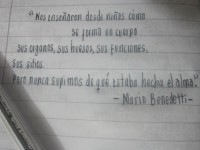 "Nos enseñaron desde niños cómo
se forma un cuerpo
sus organos, sus huesos, sus funciones,
sus sitios.
Pero nunca supimos de qué estaba hecha el alma."
-Mario Benedetti-